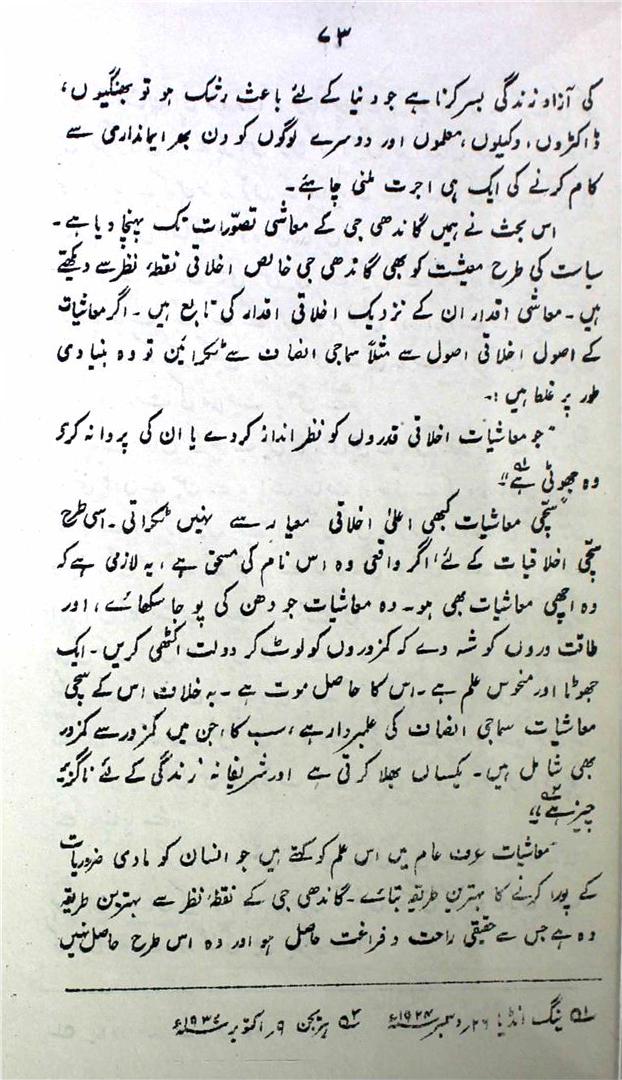 ۷۳
کی آزاد زندگی بسر کرنا ہے جو دنیا کے لئے باعث رشک ہو تو بھنگیوں،
ڈاکٹروں، وکیلوں، معلموں اور دوسرے لوگوں کو دن بھر ایمانداری سے
کام کرنے کی ایک ہی اجرت ملنی چاہئے۔
اس بحث نے ہمیں گاندھی جی کے معاشی تصوّرات تک پہنچا دیا ہے۔
سیاست کی طرح معیشت کو بھی گاندھی جی خالص اخلاقی نقطۂ نظر سے دیکھتے
ہیں۔ معاشی اقدار ان کے نزدیک اخلاقی اقدار کی تابع ہیں۔ اگر معاشیات
کے اصول اخلاقی اصول سے مثلاً سماجی انصاف سے ٹکرائیں تو وہ بنیادی
طور پر غلط ہیں :۔
"جو معاشیات اخلاقی قدروں کو نظر انداز کر دے یا ان کی پروا نہ کرے
وہ جھوٹی ہے"۱؎
"سچّی معاشیات کبھی اعلیٰ اخلاقی معیار سے نہیں ٹکراتی۔ اسی طرح
سچّی اخلاقیات کے لئے، اگر واقعی وہ اس نام کی مستحق ہے، یہ لازمی ہے کہ
وہ اچھی معاشیات بھی ہو۔ وہ معاشیات جو دھن کی پوجا سکھائے، اور
طاقت وروں کو شہ دے کہ کمزوروں کو لوٹ کر دولت اکٹھی کریں۔ ایک
جھوٹا اور منحوس علم ہے۔ اس کا حاصل موت ہے۔ بہ خلاف اس کے سچی
معاشیات سماجی انصاف کی علمبردار ہے، سب کا، جن میں کمزور سے کمزور
بھی شامل ہیں۔ یکساں بھلا کرتی ہے اور شریفانہ زندگی کے لئے ناگزیر
چیز ہے"۲؎
معاشیات عرف عام میں اس علم کو کہتے ہیں جو انسان کو مادی ضروریات
کے پورا کرنے کا بہترین طریقہ بتائے۔ گاندھی جی کے نقطۂ نظر سے بہترین طریقہ
وہ ہے جس سے حقیقی راحت و فراغت حاصل ہو اور وہ اس طرح حاصل نہیں
۱؎ ینگ انڈیا ۲۶ دسمبر ۱۹۲۴ء ۲؎ ہریجن ۹ اکتوبر ۱۹۳۷ء